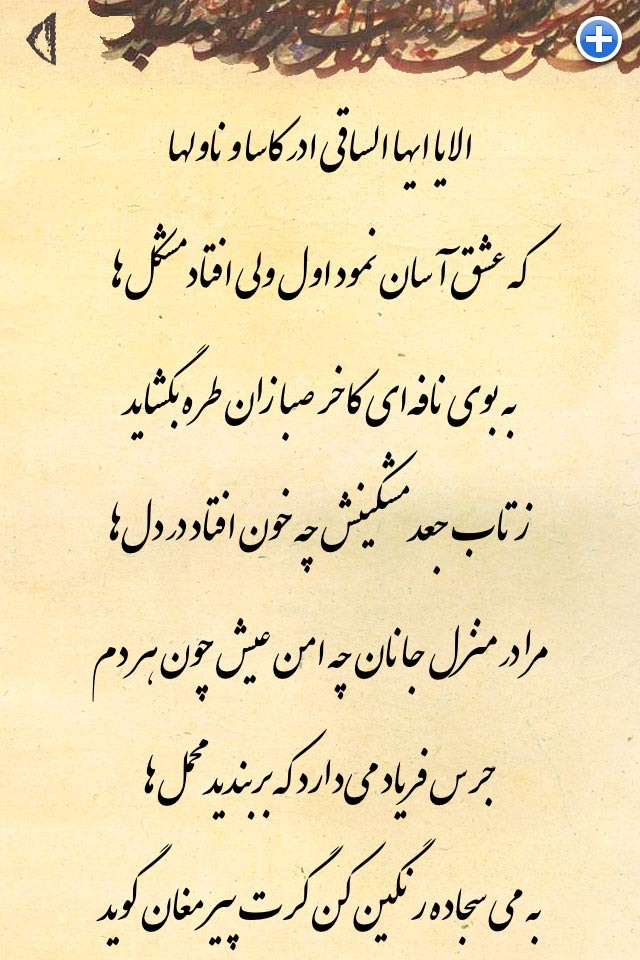 الا یا ایها الساقی ادر کاسا و ناولها
که عشق آسان نمود اول ولی افتاد مشکل‌ها
به بوی نافه‌ای کاخر صبا زان طره بگشاید
ز تاب جعد مشکینش چه خون افتاد در دل‌ها
مرا در منزل جانان چه امن عیش چون هر دم
جرس فریاد می‌دارد که بربندید محمل‌ها
به می سجاده رنگین کن گرت پیر مغان گوید